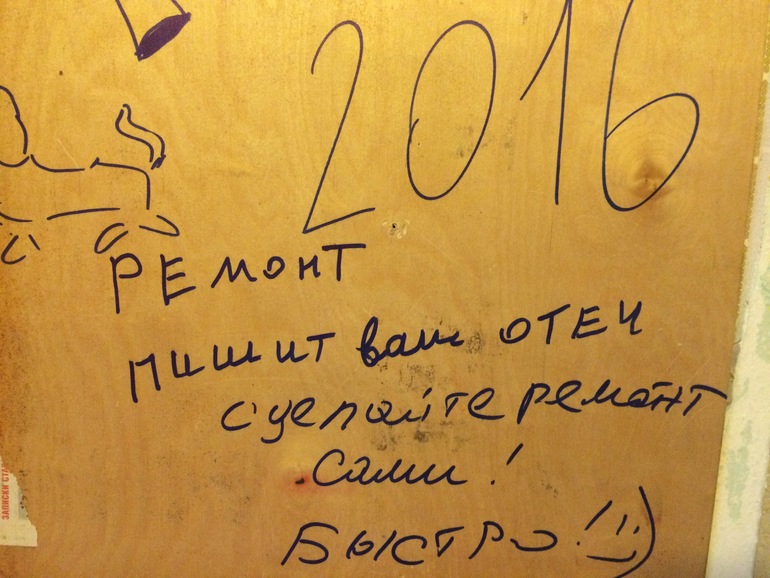 2016
РЕМОНТ
ПИШИТ ваш ОТЕЧ
сделайте ремонт
Сами!
БЫСТРО!
ЗАПИСКИ СТА